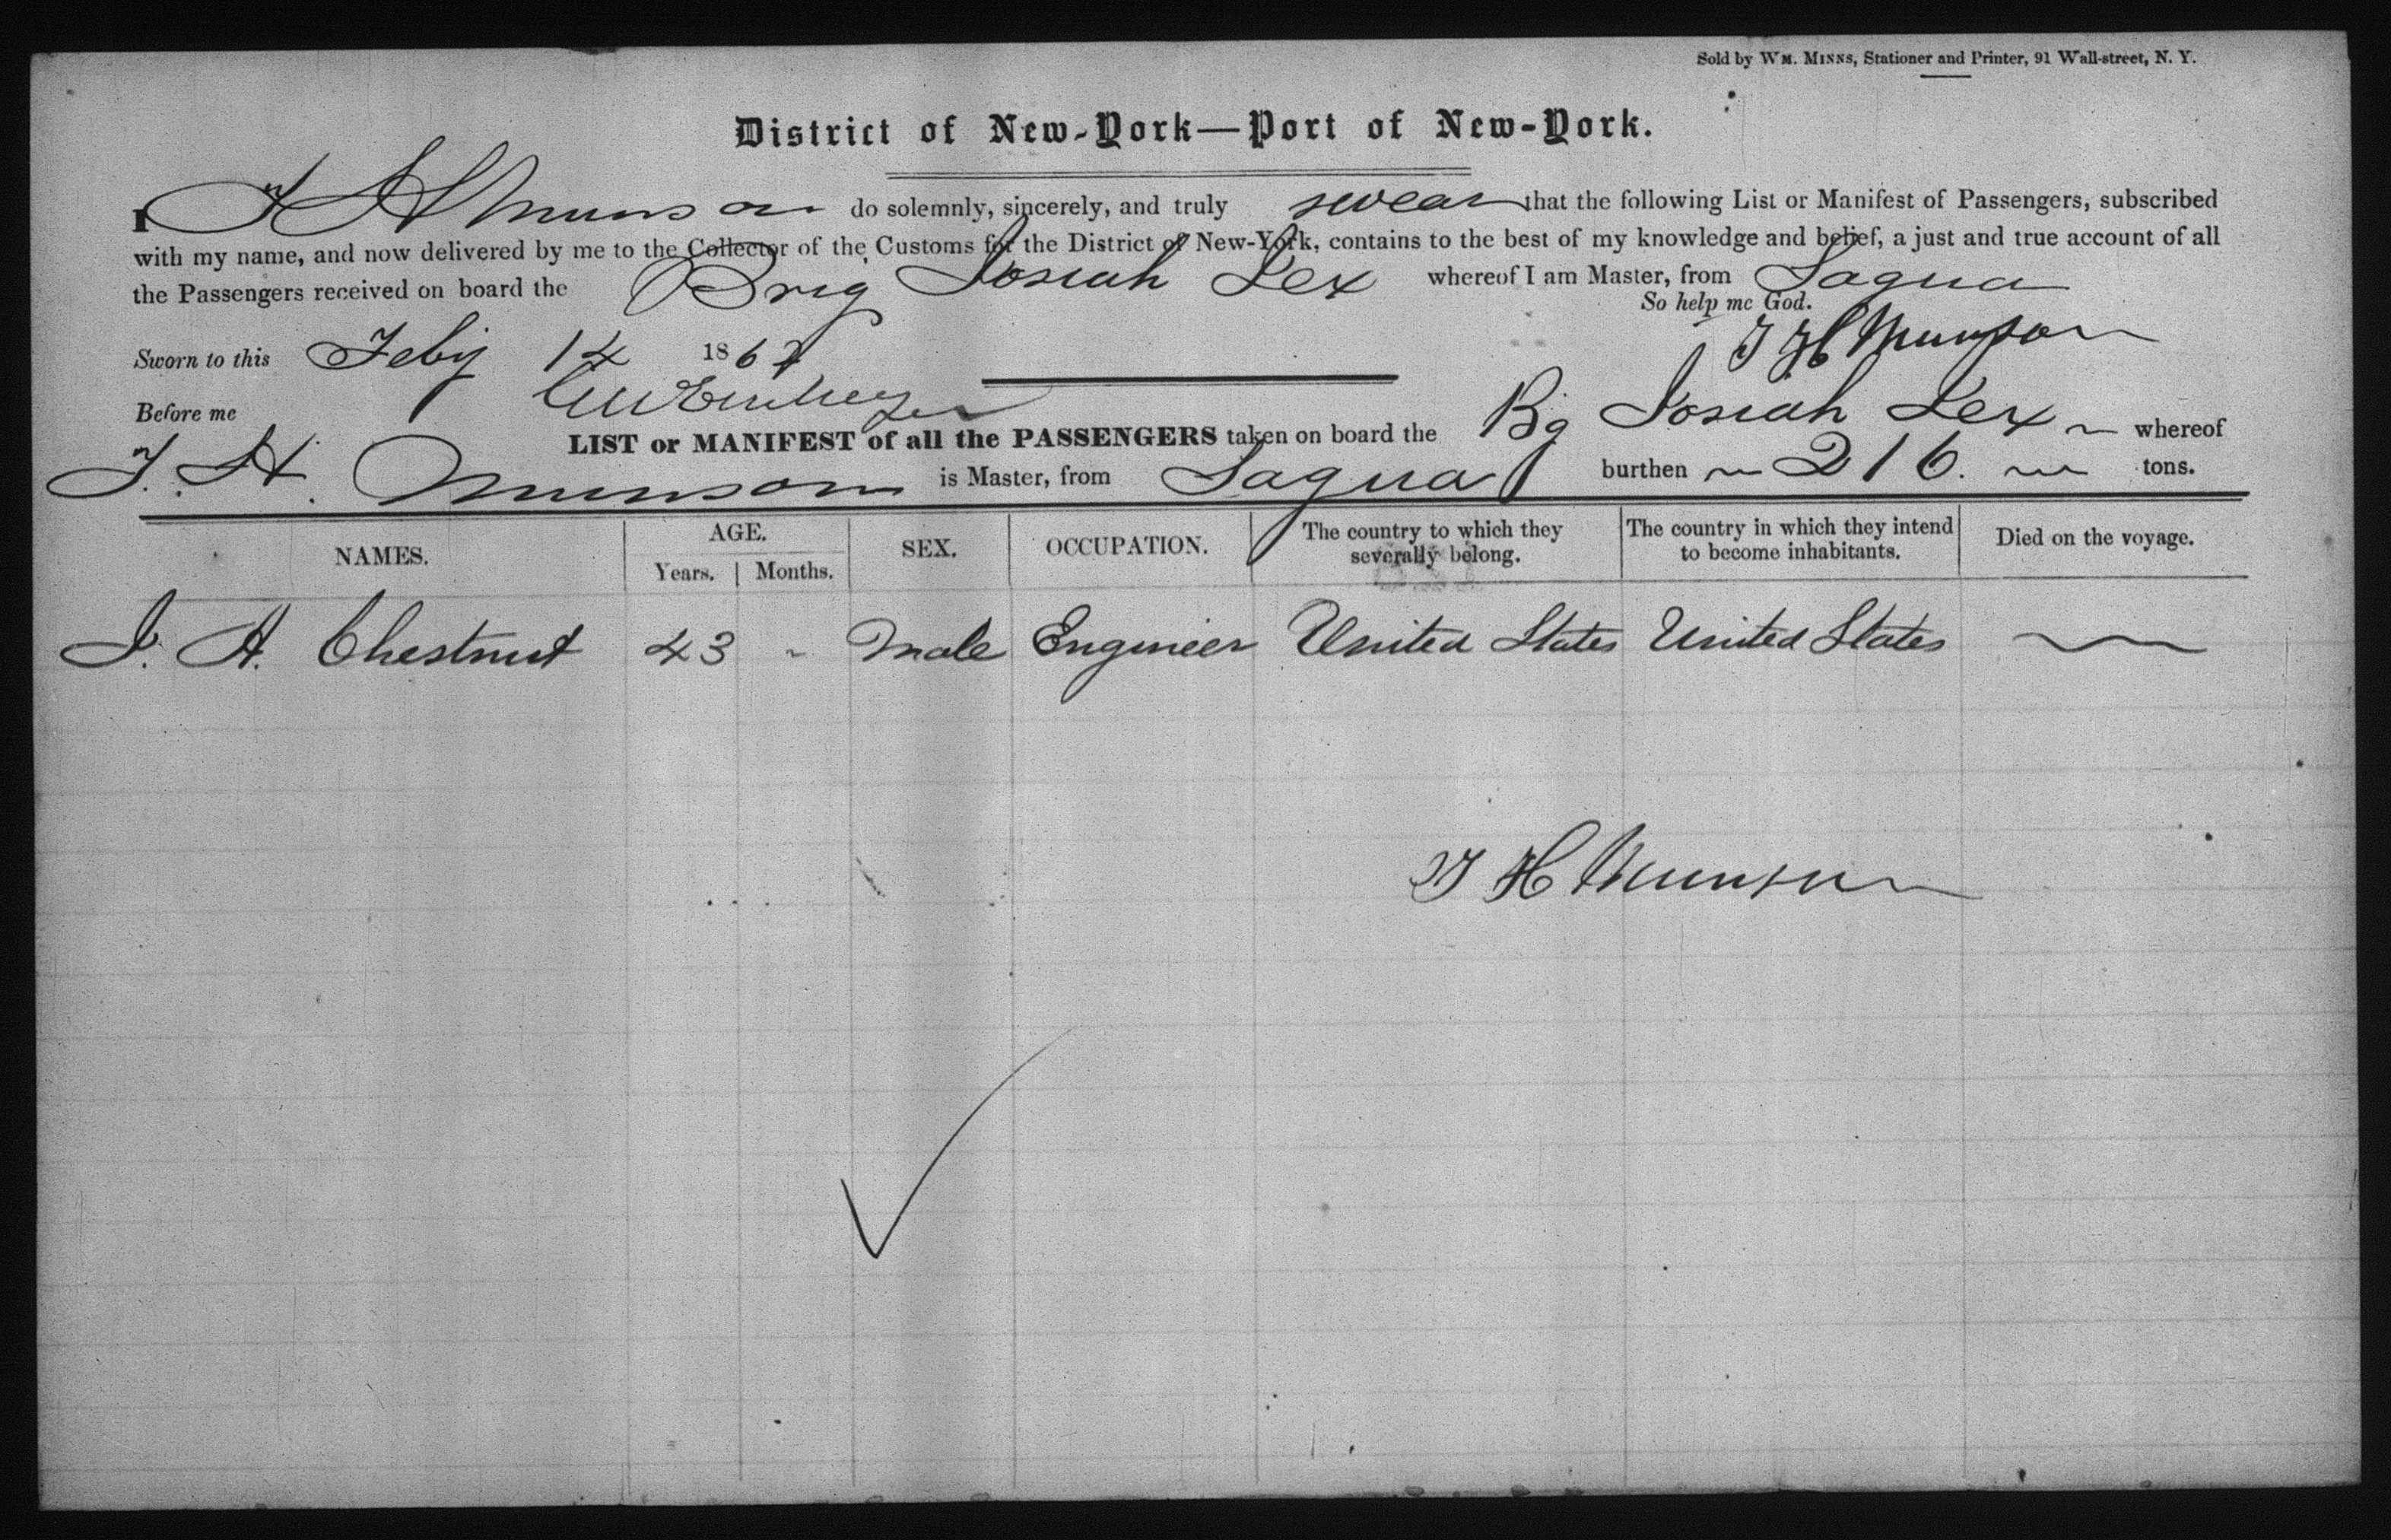 Sold by WM. MINNS, Stationer and Printer, 91 Wall-street, N. Y.
District of New-York—Port of New-York.
I T H Munson do solemnly, sincerely, and truly swear that the following List or Manifest of Passengers, subscribed
with my name, and now delivered by me to the Collector of the Customs for the District of New-York, contains to the best of my knowledge and belief, a just and true account of all
the Passengers received on board the Brig Josiah Jex whereof I am Master, from Sagua
So help me God.
T H Munson
Sworn to this Feby 14 186
Before me
LIST or MANIFEST of all the PASSENGERS taken on board the Bg Josiah Jex whereof
T. H. Munson is Master, from Sagua burthen 216. tons.
NAMES. AGE. Years. Months. SEX. OCCUPATION. The country to which they severally belong. The country in which they intend to become inhabitants. Died on the voyage.
J. H. Chestnut 43 - Male Engineer United States United States
T H Munson